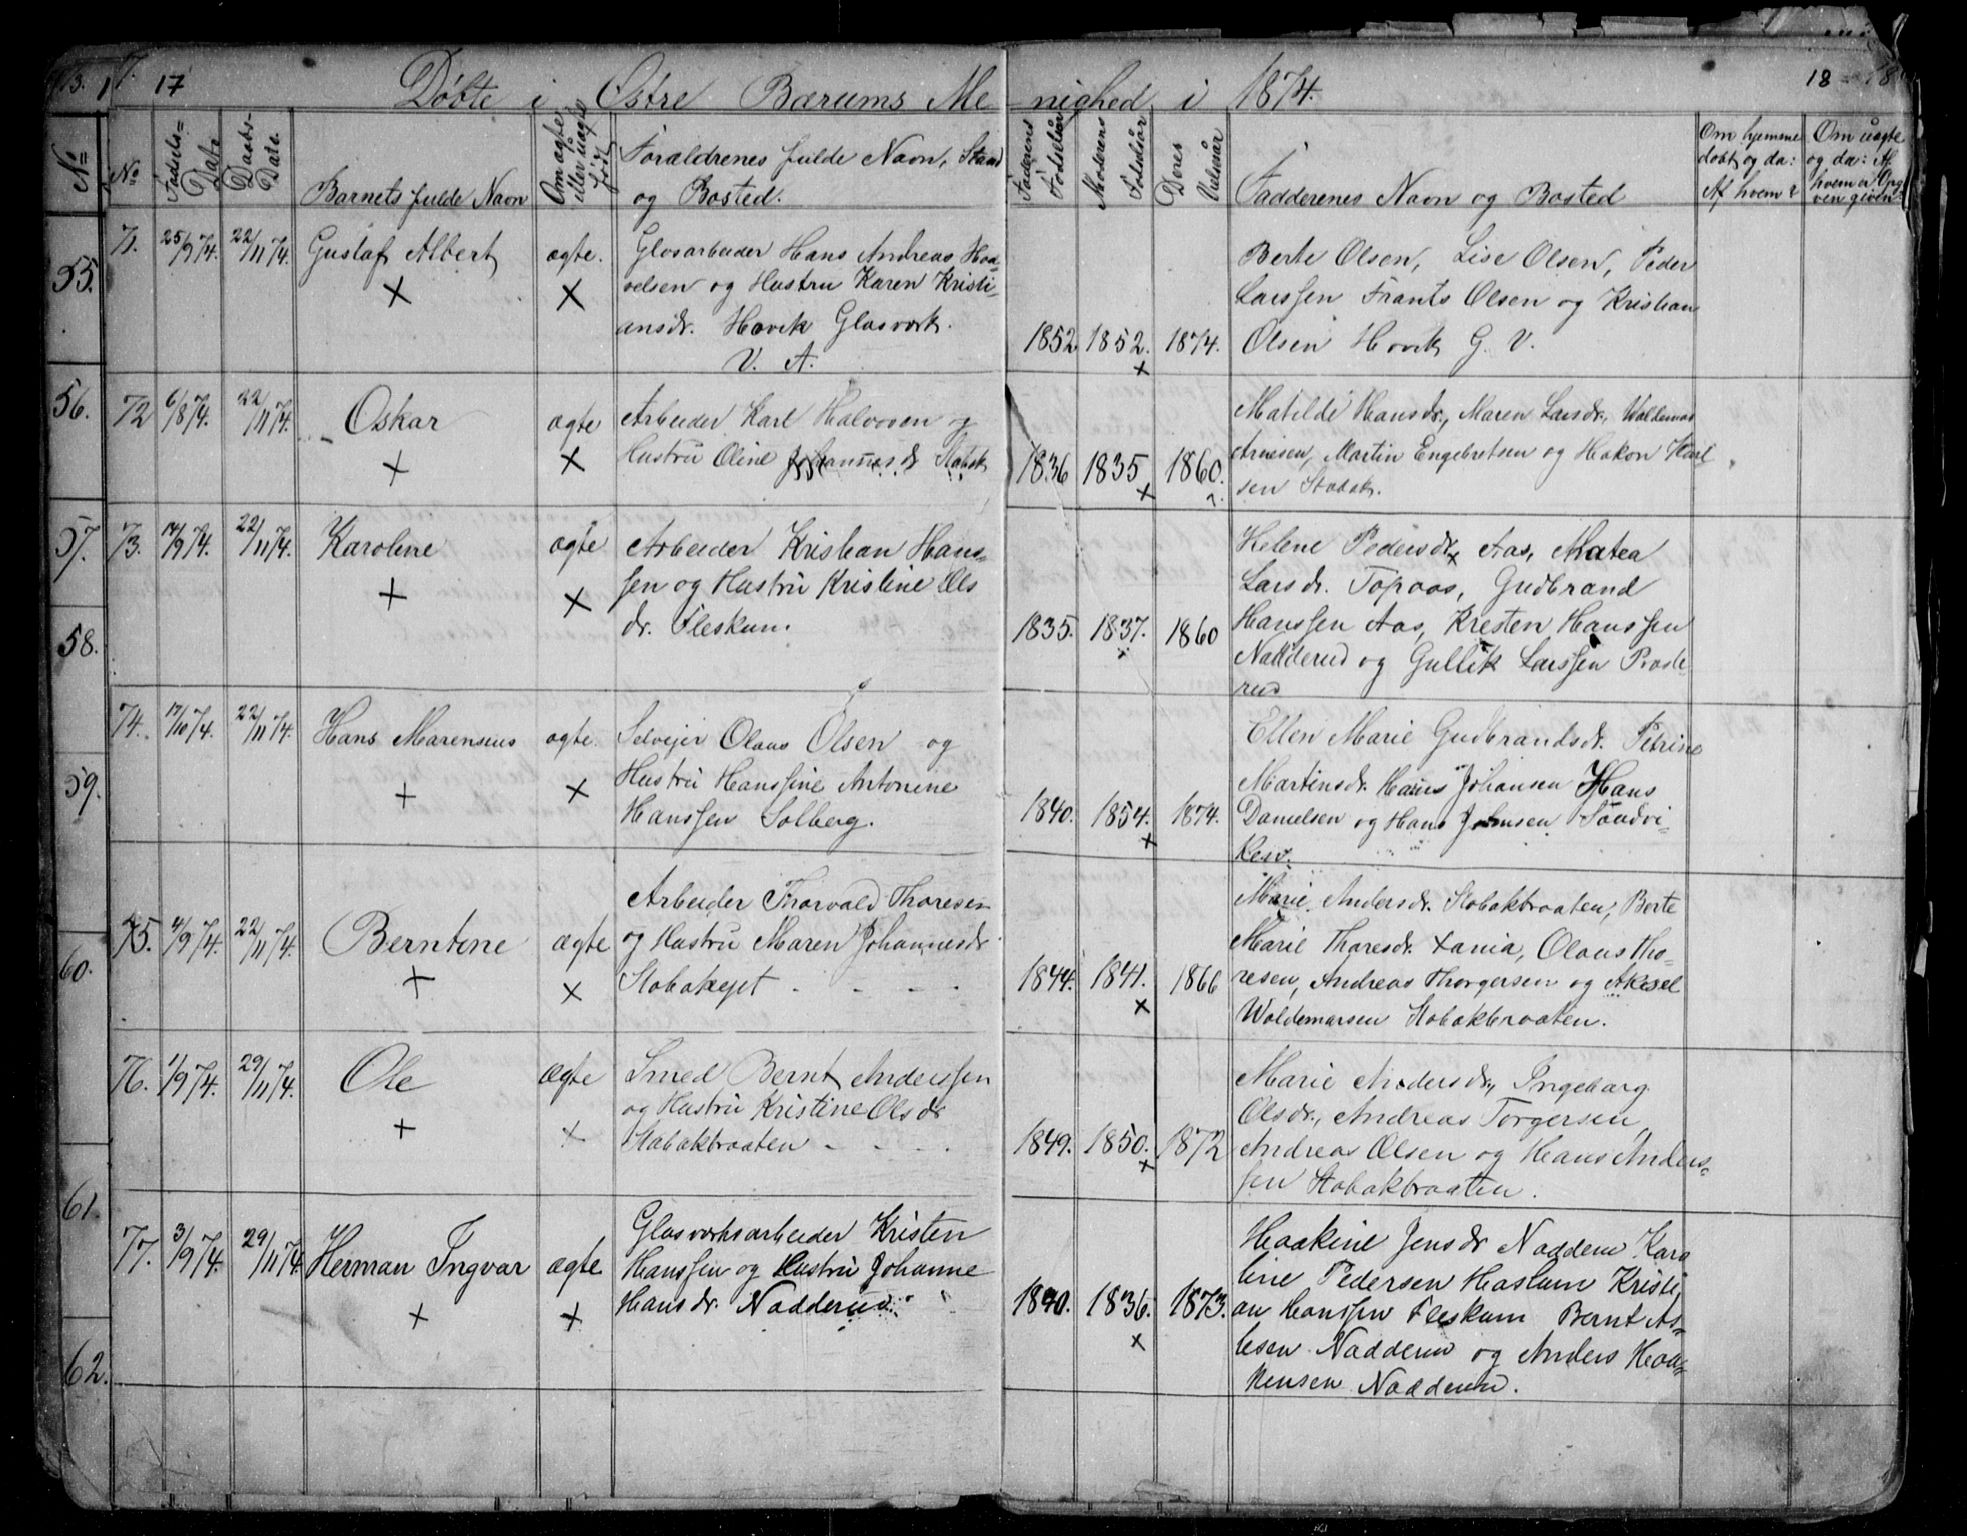 17
18
Døbte i Østre Bærums Me-nighed i 1874.
No
No
Fødsels=
Dato
Daabs-
Dato.
Barnets fulde Navn
Om ægte
eller uægte
født
Forældrenes fulde Navn, Stand
og Bosted.
Faderens
Fødselsår
Moderens
Fødselsår
Deres
Vielsesår
Fadderenes Navn og Bosted
Om hjemme
døbt og da:
Af hvem?
Om uægte
og da: Af
hvem er Opga
ven given
55.
71.
25/9 74.
22/11 74.
Gustaf Albert
ægte.
Glasarbeider Hans Andreas Haa-
velsen og Hustru Karen Kristi-
ansdr. Høvik Glasværk.
V. A.
1852
1852.
1874.
Berte Olsen, Lise Olsen, Peder
Larssen Frants Olsen og Kristian
Olsen Høvik G. V.
56.
72
6/8 74.
22/11 74.
Oskar
ægte
Arbeider Karl Halvorsen og
Hustru Oline Johannesdr Stabæk
1836
1835
1860.
Matilde Hansdr., Maren Larsdr., Waldemar
Arnesen, Martin Engebretsen og Hakon Karl
sen Stabæk.
57.
73.
14/9 74.
22/11 74.
Karoline
ægte
Arbeider Kristian Hans-
sen og Hustru Kristine Ols
dr. Fleskum.
1835.
1837.
1860
Helene Pedersdr Aas, Matea
Larsdr. Topaas, Gudbrand
Hanssen Aas, Kresten Hanssen
Nadderud og Gullik Larssen Proste-
rud
58.
74.
17/10 74.
22/11 74.
Hans Marensius
ægte.
Selvejer Olaus Olsen og
Hustru Hanssine Antonine
Hanssen Solberg.
1840.
1854.
1874.
Ellen Marie Gudbrandsdr. Petrine
Martinsdr. Hans Johansen Hans
Danielsen og Hans Johnsen Sandvi-
ken.
59.
75.
4/9 74.
22/11 74.
Berntine
ægte
Arbeider Thorvald Thoresen
og Hustru Maren Johannesdr.
Stabækejet
1844.
1841.
1866
Marie Andersdr. Stabækbraaten, Berte
Marie Thoresdr. Olaus Tho-
resen, Andreas Thorgersen og Aksel
Woldemarsen Stabækbraaten.
60.
76.
1/9 74.
29/11 74.
Ole
Ægte
Smed Bernt Anderssen
og Hustru Kristine Olsdr
Stabækbraaten
1849.
1850.
1872
Marie Andersdr., Ingeborg
Olsdr., Andreas Torgersen,
Andreas Olsen og Hans Anders-
sen Stabækbraaten.
61.
77.
3/9 74.
29/11 74.
Herman Ingvar
ægte
Glasværksarbeider Kristen
Hanssen og Hustru Johanne
Hansdr. Nadderud.
1840.
1836.
1873.
Haakine Jensdr Nadderu Karo
line Pedersen Haslum Kristi,
an Hanssen Fleskum Bernt As-
lesen Nadderu og Anders Haa-
kensen Nadderu.
62.